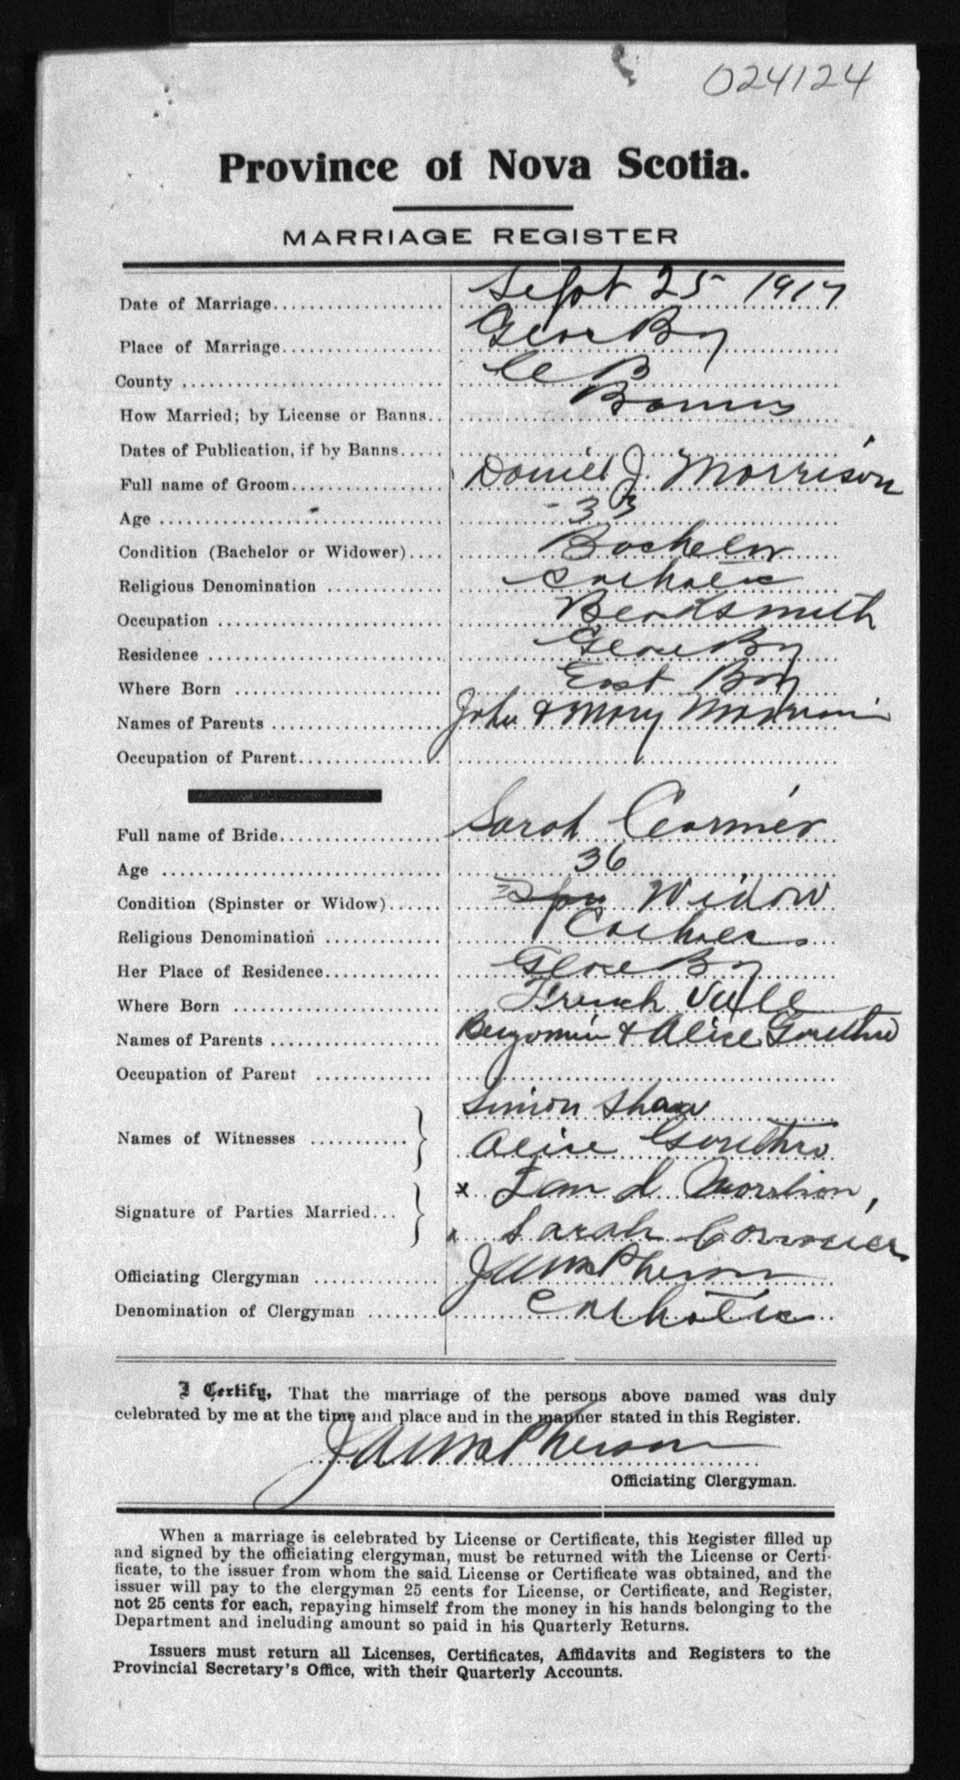 024124
Province of Nova Scotia.
MARRIAGE REGISTER
Date of Marriage Sept 25 1917
Place of Marriage Glace Bay
County C B
How Married; by License or Banns Banns
Dates of Publication, if by Banns
Full name of Groom Daniel J. Morrison
Age 33
Condition (Bachelor or Widower) Bachelor
Religious Denomination Catholic
Occupation
Residence Glace Bay
Where Born East Bay
Names of Parents John & Mary Morrison
Occupation of Parent
Full name of Bride Sarah Cormier
Age 36
Condition (Spinster or Widow) Widow
Religious Denomination Catholic
Her Place of Residence Glace Bay
Where Born French Vale
Names of Parents Benjamin & Alice Gouthro
Occupation of Parent
Names of Witnesses Simon Shaw
Alice Gouthro
Signature of Parties Married x Dan J. Morrison
x Sarah Cormier
Officiating Clergyman
Denomination of Clergyman Catholic
I Certify, That the marriage of the persons above named was duly
celebrated by me at the time and place and in the manner stated in this Register.
Officiating Clergyman.
When a marriage is celebrated by License or Certificate, this Register filled up
and signed by the officiating clergyman, must be returned with the License or Certi-
ficate, to the issuer from whom the said License or Certificate was obtained, and the
issuer will pay to the clergyman 25 cents for License, or Certificate, and Register,
not 25 cents for each, repaying himself from the money in his hands belonging to the
Department and including amount so paid in his Quarterly Returns.
Issuers must return all Licenses, Certificates, Affidavits and Registers to the
Provincial Secretary's Office, with their Quarterly Accounts.